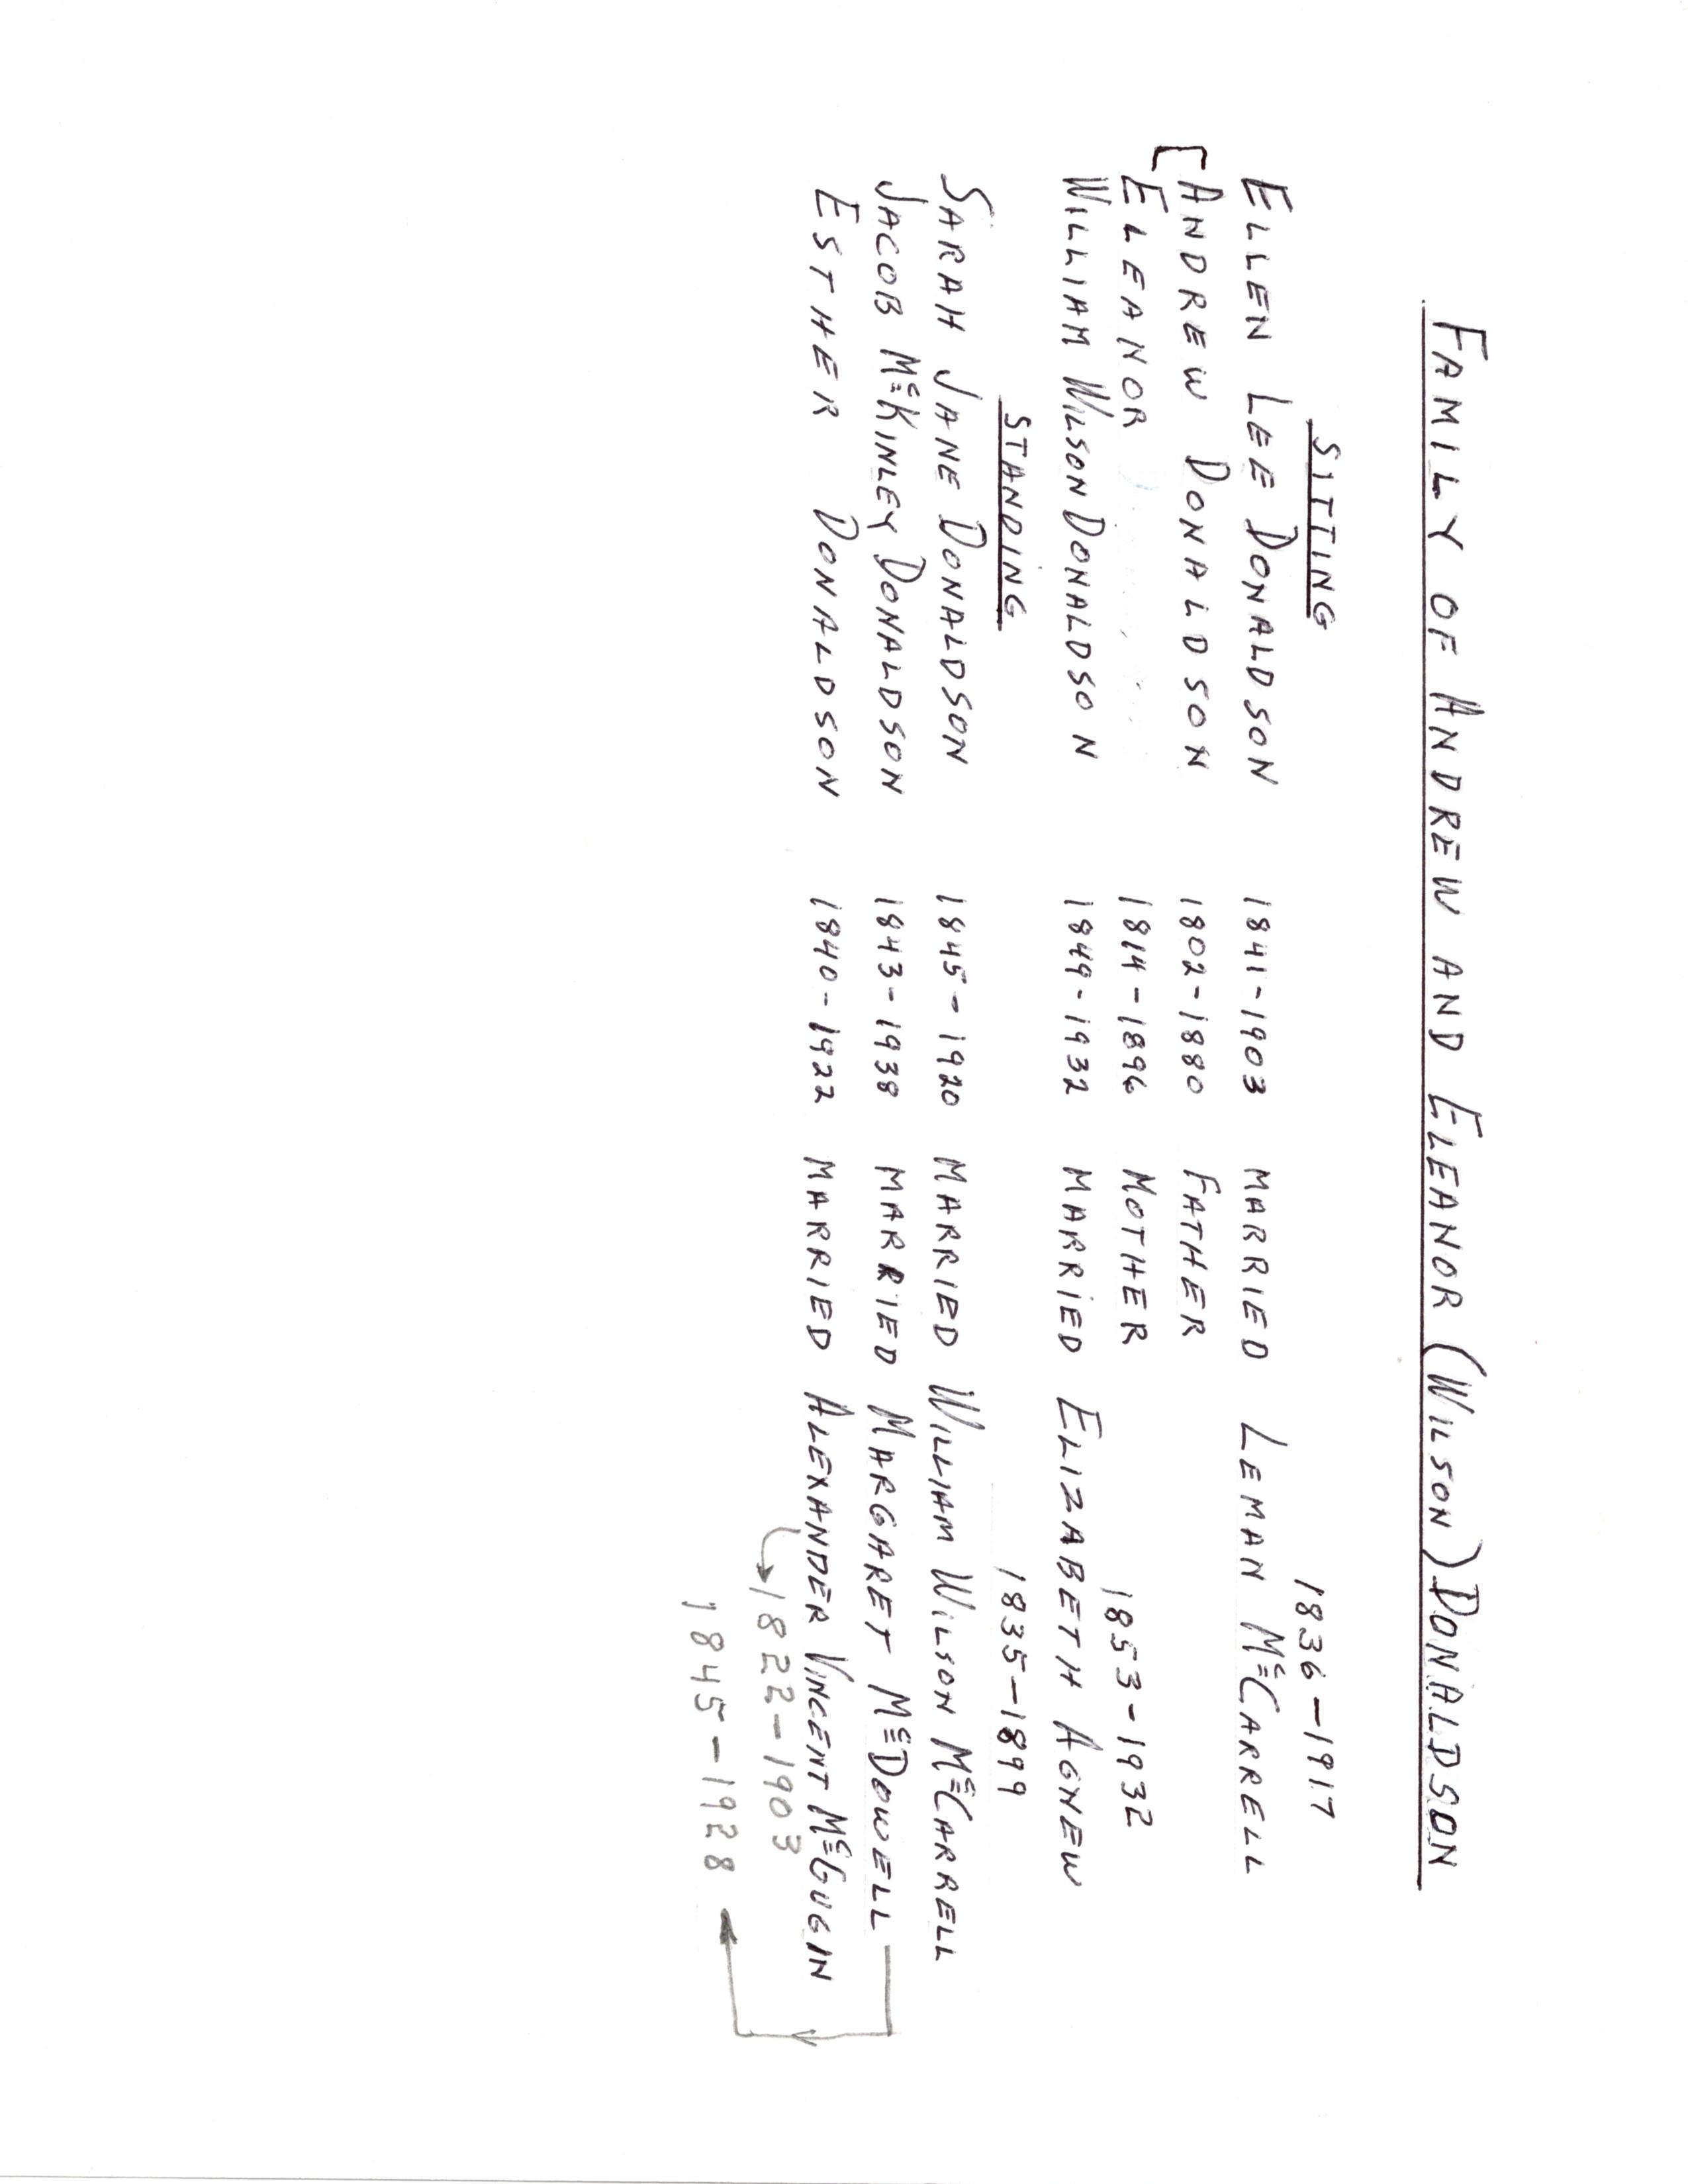 FAMILY OF ANDREW AND ELEANOR (WILSON) DONALDSON
SITTING
1836-1917
ELLEN LEE DONALDSON 1841-1903 MARRIED LEMAN McCARRELL
[ANDREW DONALDSON 1802-1880 FATHER
ELEANOR 1814-1896 MOTHER
1853-1932
WILLIAM WILSON DONALDSON 1849-1932 MARRIED ELIZABETH AGNEW
STANDING
1835-1899
SARAH JANE DONALDSON 1845-1920 MARRIED WILLIAM WILSON McCARRELL
JACOB McKINLEY DONALDSON 1843-1938 MARRIED MARGARET McDOWELL
ESTHER DONALDSON 1840-1922 MARRIED ALEXANDER VINCENT McGUGIN
1822-1903
1845-1928